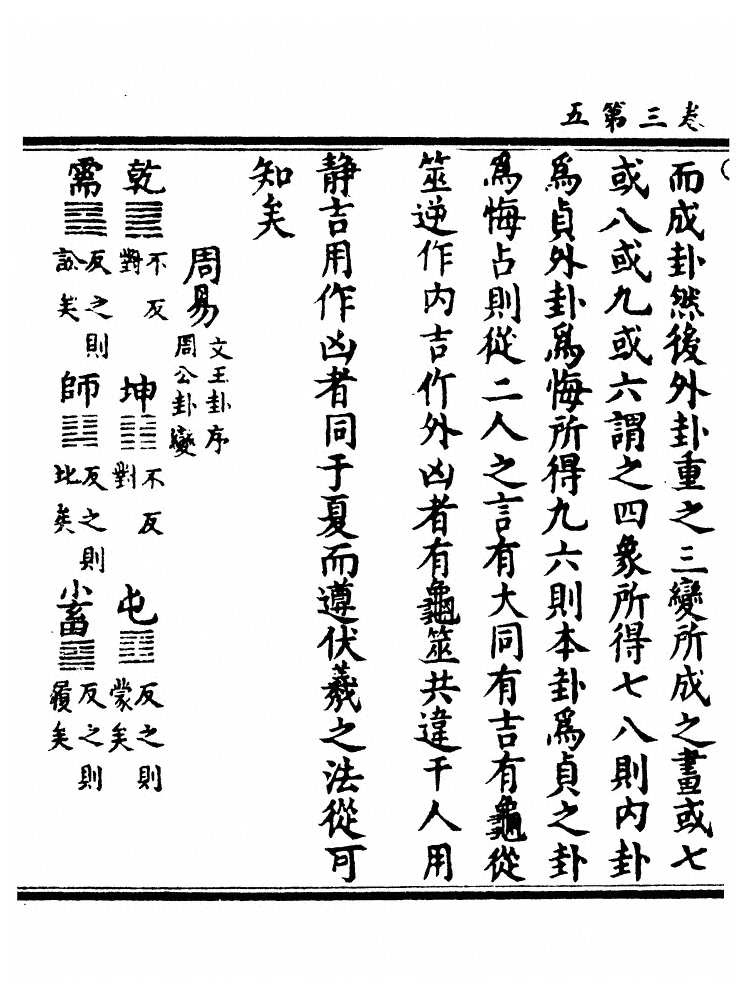 卷三第五
而成卦然後外卦重之三變所成之畫或七
或八或九或六謂之四象所得七八則內卦
爲貞外卦爲悔所得九六則本卦爲貞之卦
爲悔占則從二人之言有大同有吉有龜從
筮逆作內吉作外凶者有龜筮共違于人用
靜吉用作凶者同于夏而遵伏羲之法從可
知矣
周易 文王卦序 周公卦變
乾䷀不反對 坤䷁不反對 屯䷂反之則蒙矣
需䷄反之則訟矣 師䷆反之則比矣 小畜䷈反之則履矣